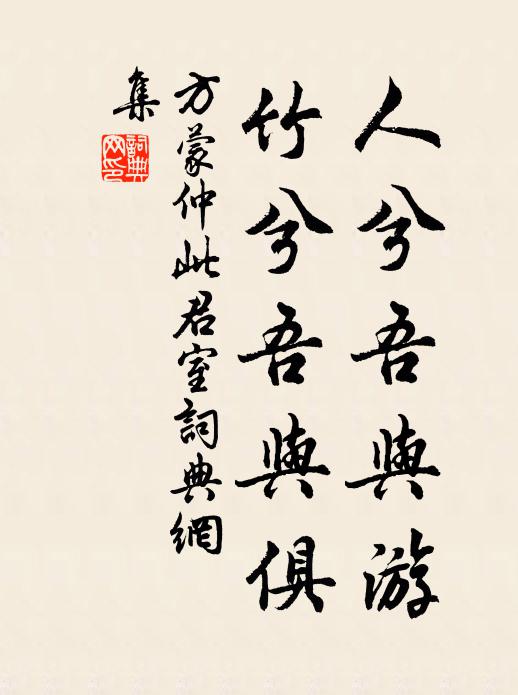 人兮吾與游
竹兮吾與俱
方蒙仲此君室詞典網
集
詞典網印